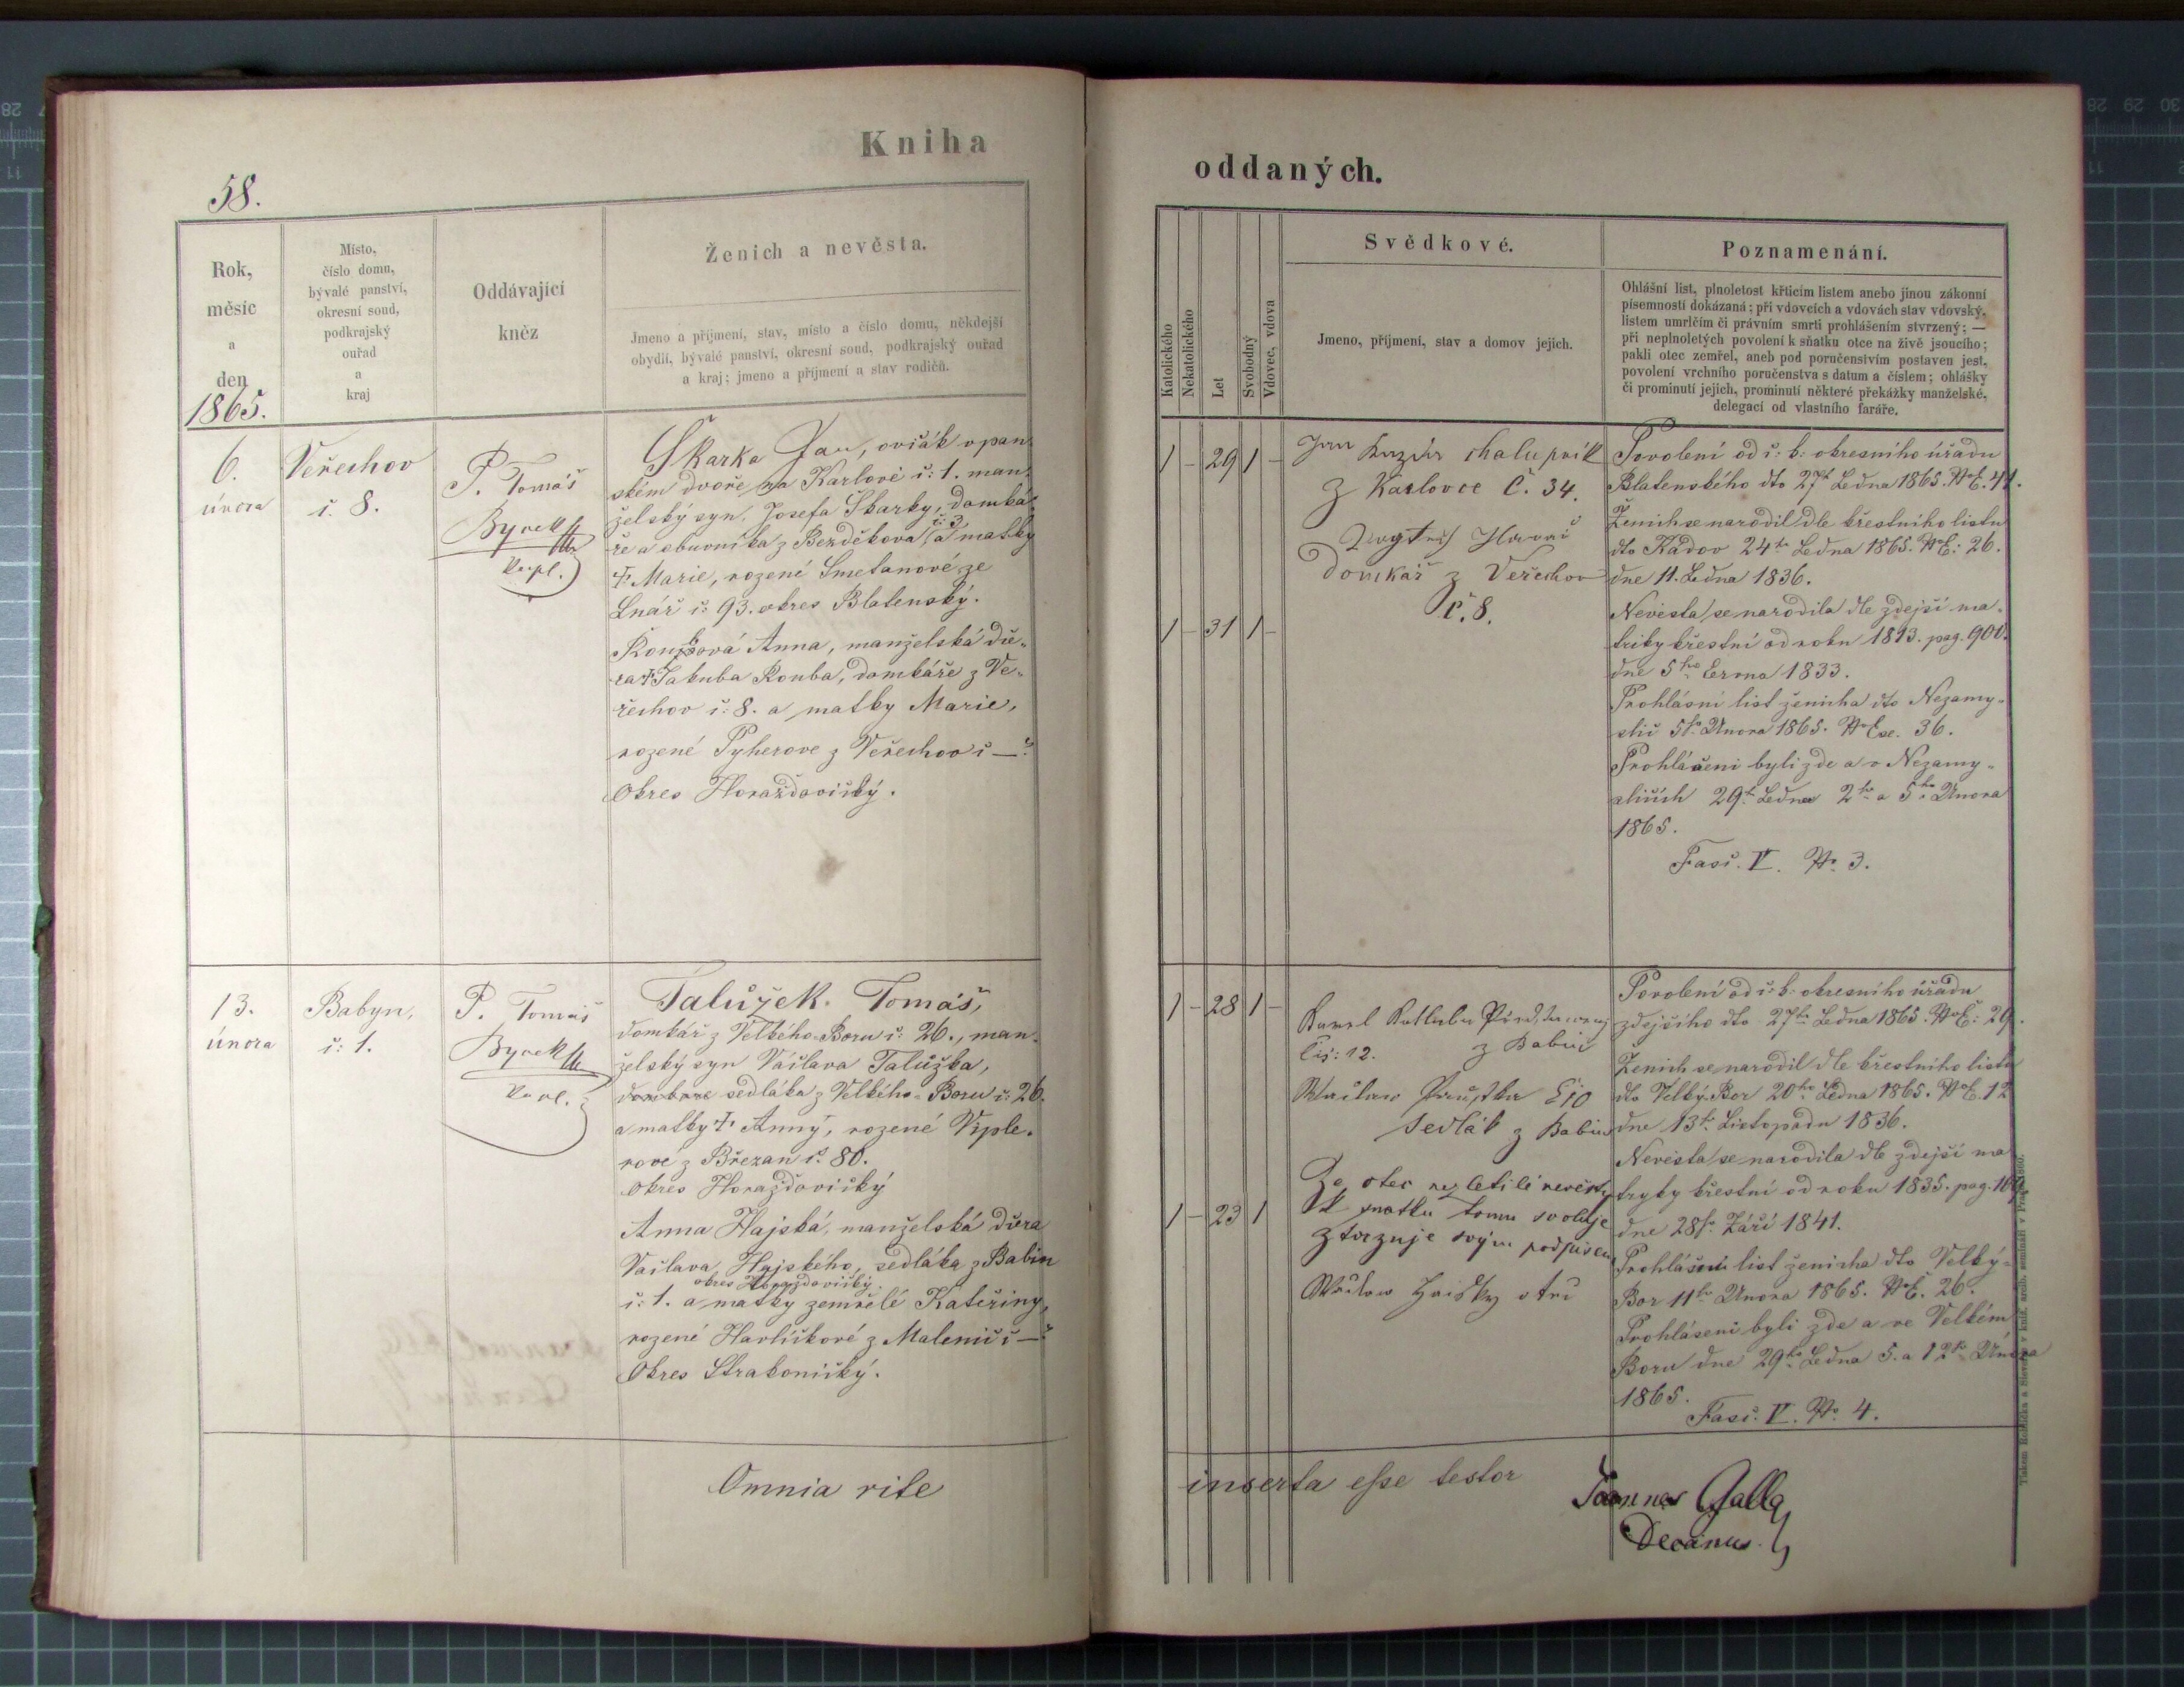 Kniha
58.
Rok,
měsíc
a
den
1865.
Místo,
číslo domu,
bývalé panství,
okresní soud,
podkrajský
ouřad
a
kraj
Oddávající
kněz
Ženich a nevěsta.
Jmeno a příjmení, stav, místo a číslo domu, někdejší
obydlí, bývalé panství, okresní soud, podkrajský ouřad
a kraj; jmeno a příjmení a stav rodičů.
6.
února
Veřechov
č. 8.
P. Tomáš
Byrek
kapl.
Skarka Jan, ovčák v pan
ském dvoře na Karlově č: 1. man
želský syn Josefa Skarky, domká
ře a obuvníka z Bezděkova č: 3 a matky
† Marie, rozené Smetanové ze
Lnář č: 93. okres Blatenský.
Anna, manželská dce
ra † Jakuba Kouba, domkáře z Ve
řechov č: 8. a matky Marie,
rozené Pyherove z Veřechov č —
Okres Horažďovický.
13.
února
Babyn,
č: 1.
P. Tomáš
Byrek
kapl.
Talůžek Tomáš,
domkář z Velkého Boru č: 26., man
želský syn Václava Talůžka,
sedláka z Velkého Boru č: 26.
a matky † Anny, rozené Viple
rové z Březan č. 80.
Okres Horažďovický
Anna Hajská, manželská dcera
Václava Hajského, sedláka z Babin
okres Horažďovický
č: 1. a matky zemřelé Kateřiny,
rozené Havlíčkové z Malenič č —
Okres Strakonický.
Omnia rite
oddaných.
Katolického
Nekatolického
Let
Svobodný
Vdovec, vdova
Svědkové.
Jmeno, příjmení, stav a domov jejich.
Poznamenání.
Ohlášní list, plnoletost křticím listem anebo jinou zákonní
písemností dokázaná; při vdovcích a vdovách stav vdovský,
listem umrlčím či právním smrti prohlášením stvrzený; —
při neplnoletých povolení k sňatku otce na živě jsoucího;
pakli otec zemřel, aneb pod poručenstvím postaven jest,
povolení vrchního poručenstva s datum a číslem; ohlášky
či prominutí jejich, prominutí některé překážky manželské,
delegací od vlastního faráře.
1 - 29 1 -
Jan chalupník
z Karlovce Č. 34.
domkář z Veřechov
č. 8.
1 - 31 1 -
Povolení od c: k: okresního úřadu
Blatenského dto 27 Ledna 1865.
Ženich se narodil dle křestního listu
dto Kádov 24 Ledna 1865. 26.
dne 11. Ledna 1836.
Nevěsta se narodila dle zdejší ma
triky křestní od roku pag.
dne 5ho 1833.
Prohlásní list ženicha dto Nezamy
slic 5 Února 1865. 36.
Prohlášeni byli zde a v Nezamy
slicích 29 Ledna 2ho a 5ho Února
1865.
Fasc. V. No. 3.
1 - 28 1 -
Karel
čís: 12. z Babin
sedlák z Babin
1 - 23 1
Že otec nezletilé nevěsty
k sňatku tomu svoluje
ztvrzuje svým podpisem
Povolení od c: k: okresního úřadu
zdejšího dto 27 Ledna 1865. 29.
Ženich se narodil dle křestního listu
dto Velký Bor 20ho Ledna 1865. 12
dne 13 Listopadu 1836.
Nevěsta se narodila dle zdejší ma
tryky křestní od roku 1835. pag.
dne 28. Září 1841.
Prohlásní list ženicha dto Velký
Bor 11 Února 1865. 26.
Prohlášeni byli zde a ve Velkém
Boru dne 29 Ledna 5. a 12 Února
1865.
Fasc. V. No. 4.
inserta esse testor
Joannes Galla
Decanus.